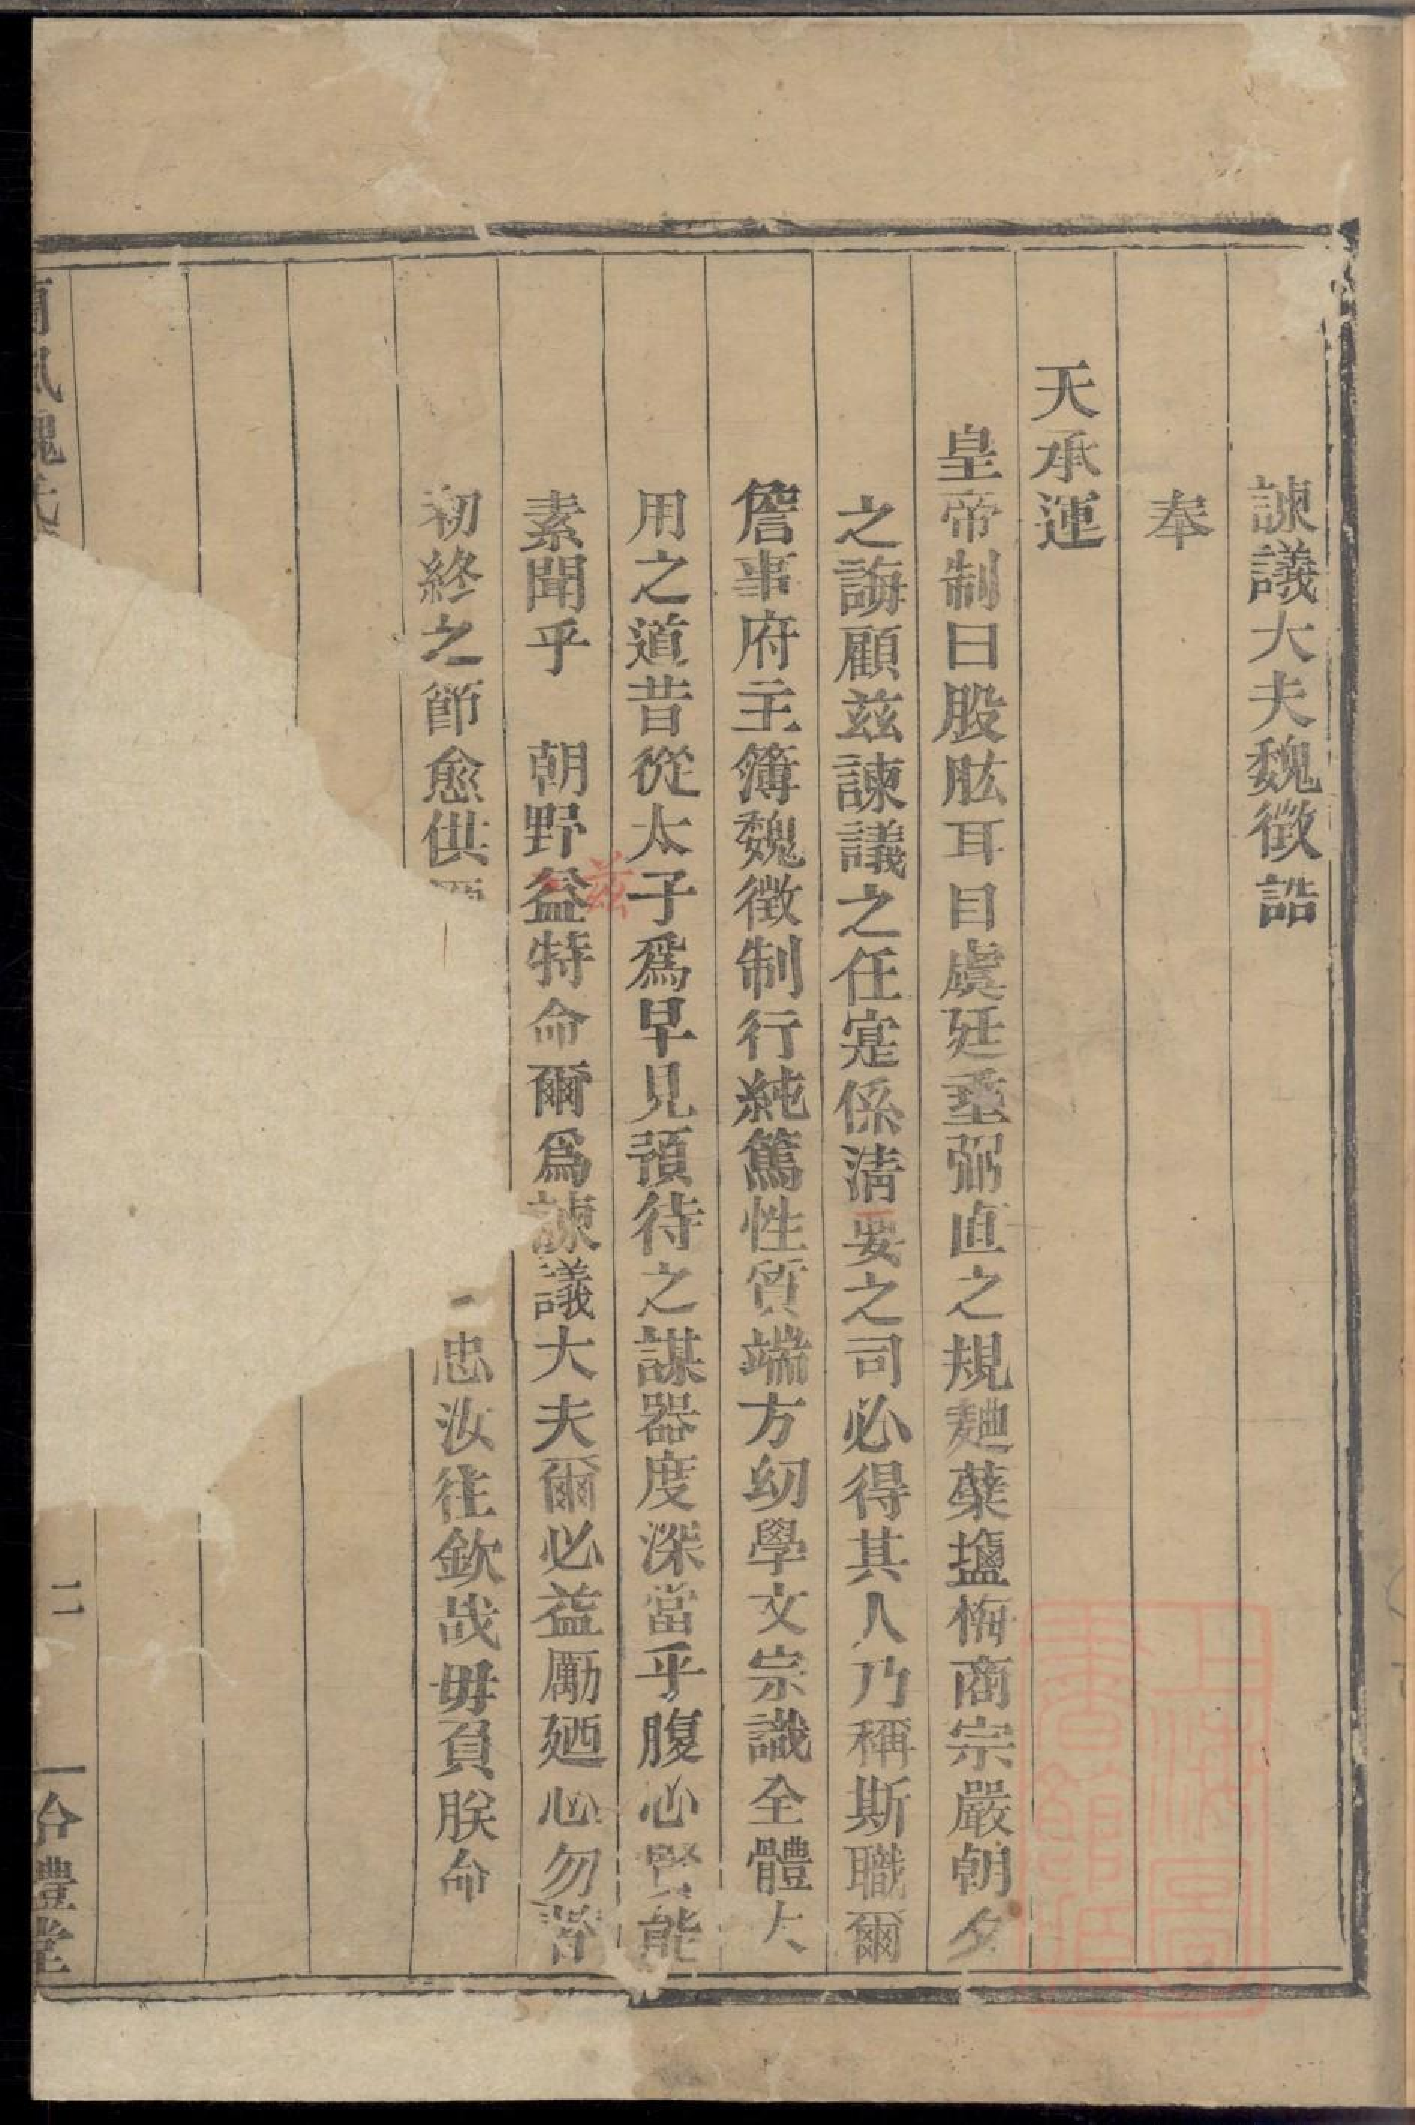 諫議大夫魏徵誥
奉
天承運
皇帝制曰股肱耳目虞廷重弼直之規麯蘖鹽梅商宗嚴朝夕
之誨顧兹諫議之任寔係清要之司必得其人乃稱斯職爾
詹事府主簿魏徵制行純篤性質端方幼學文宗識全體大
用之道昔從太子為早見預待之謀器度深當乎腹心賢能
素聞乎 朝野益特命爾為諫議大夫爾必益勵廼心勿替
兹
初終之節愈供
忠汝往欽哉毋負朕命
風魏氏
二
合禮堂
上海圖書館藏